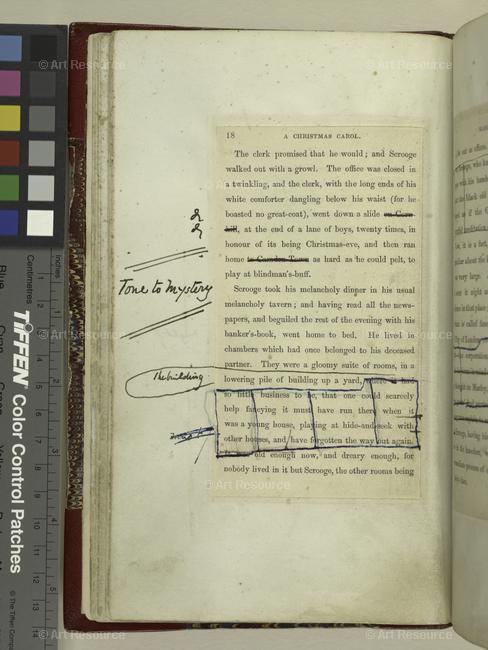 © Art Resource
© Art Resource
© Art Resource
18 A CHRISTMAS CAROL.
The clerk promised that he would; and Scrooge
walked out with a growl. The office was closed in
a twinkling, and the clerk, with the long ends of his
white comforter dangling below his waist (for he
boasted no great-coat), went down a slide on Corn
hill, at the end of a lane of boys, twenty times, in
honour of its being Christmas-eve, and then ran
home to Camden Town as hard as he could pelt, to
play at blindman's-buff.
Tone to Mystery
Scrooge took his melancholy dinner in his usual
melancholy tavern; and having read all the news-
papers, and beguiled the rest of the evening with his
banker's-book, went home to bed. He lived in
chambers which had once belonged to his deceased
partner. They were a gloomy suite of rooms, in a
The building
lowering pile of building up a yard, where it had
so little business to be, that one could scarcely
help fancying it must have run there when it
was a young house, playing at hide-and-seek with
other houses, and have forgotten the way out again.
old enough now, and dreary enough, for
nobody lived in it but Scrooge, the other rooms being
© Art Resource
© Art Resource
© Art Resource
© Art Resource
TIFFEN Color Control Patches
© The Tiffen Company
Centimetres
Inches
Blue